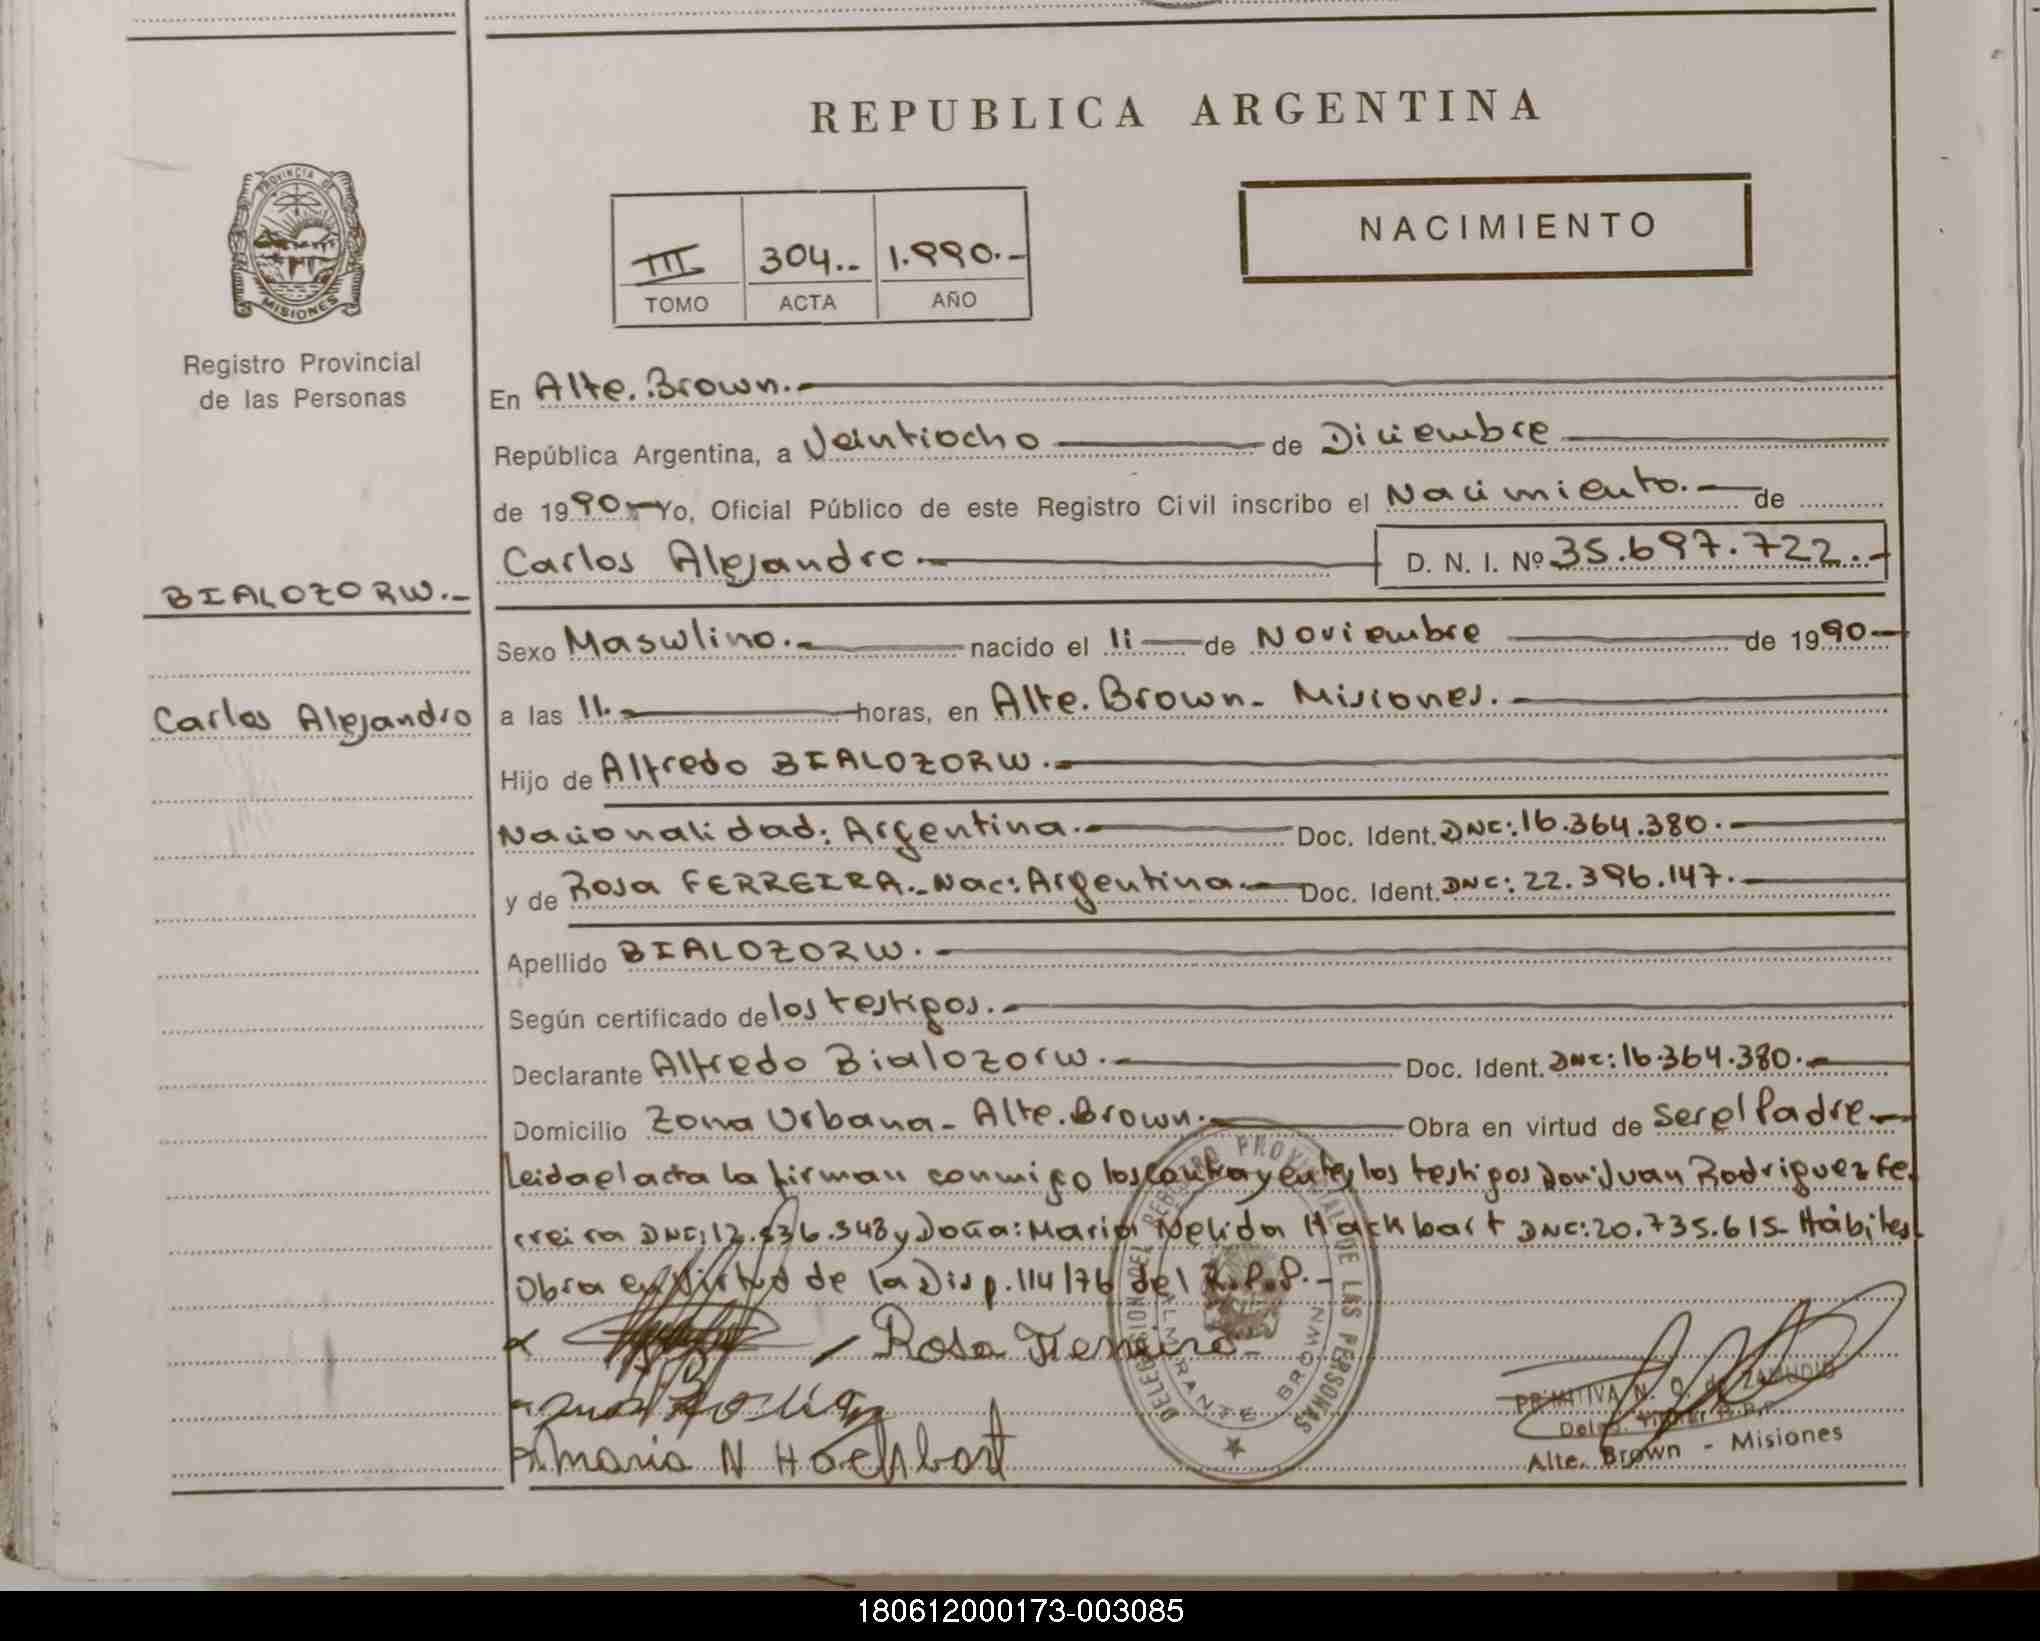 REPUBLICA ARGENTINA
NACIMIENTO
III 304.- 1.990.-
TOMO ACTA AÑO
PROVINCIA DE
MISIONES
Registro Provincial
de las Personas
BIALOZORW.-
Carlos Alejandro
En Alte. Brown.-
República Argentina, a Veintiocho de Diciembre
de 1990.- Yo, Oficial Público de este Registro Civil inscribo el Nacimiento.- de
Carlos Alejandro.- D. N. I. Nº 35.697.722.-
Sexo Masculino.- nacido el 11 de Noviembre de 1990
a las 11.- horas, en Alte. Brown- Misiones.-
Hijo de Alfredo BIALOZORW.-
Nacionalidad: Argentina.- Doc. Ident. DNC: 16.364.380.-
y de Rosa FERREIRA.- Nac: Argentina.- Doc. Ident. DNC: 22.396.147.-
Apellido BIALOZORW.-
Según certificado de los testigos.-
Declarante Alfredo Bialozorw.- Doc. Ident. DNC: 16.364.380.-
Domicilio Zona Urbana- Alte. Brown.- Obra en virtud de ser el Padre
Leida el acta la firman conmigo los contrayentes los testigos Don: Juan Rodriguez Fe-
rreira DNC: y Doña: Maria Nelida Hackbart DNC: 20.735.615- Hábiles
Obra en virtud de la Disp. 114/76 del R.P.P.-
Rosa Ferreira
Maria N Hackbart
DELEGACION DEL REGISTRO PROVINCIAL DE LAS PERSONAS
ALMIRANTE BROWN
PRIMITIVA N. O. de ZAMUDIO
Deleg. Titular R.P.P.
Alte. Brown - Misiones
180612000173-003085